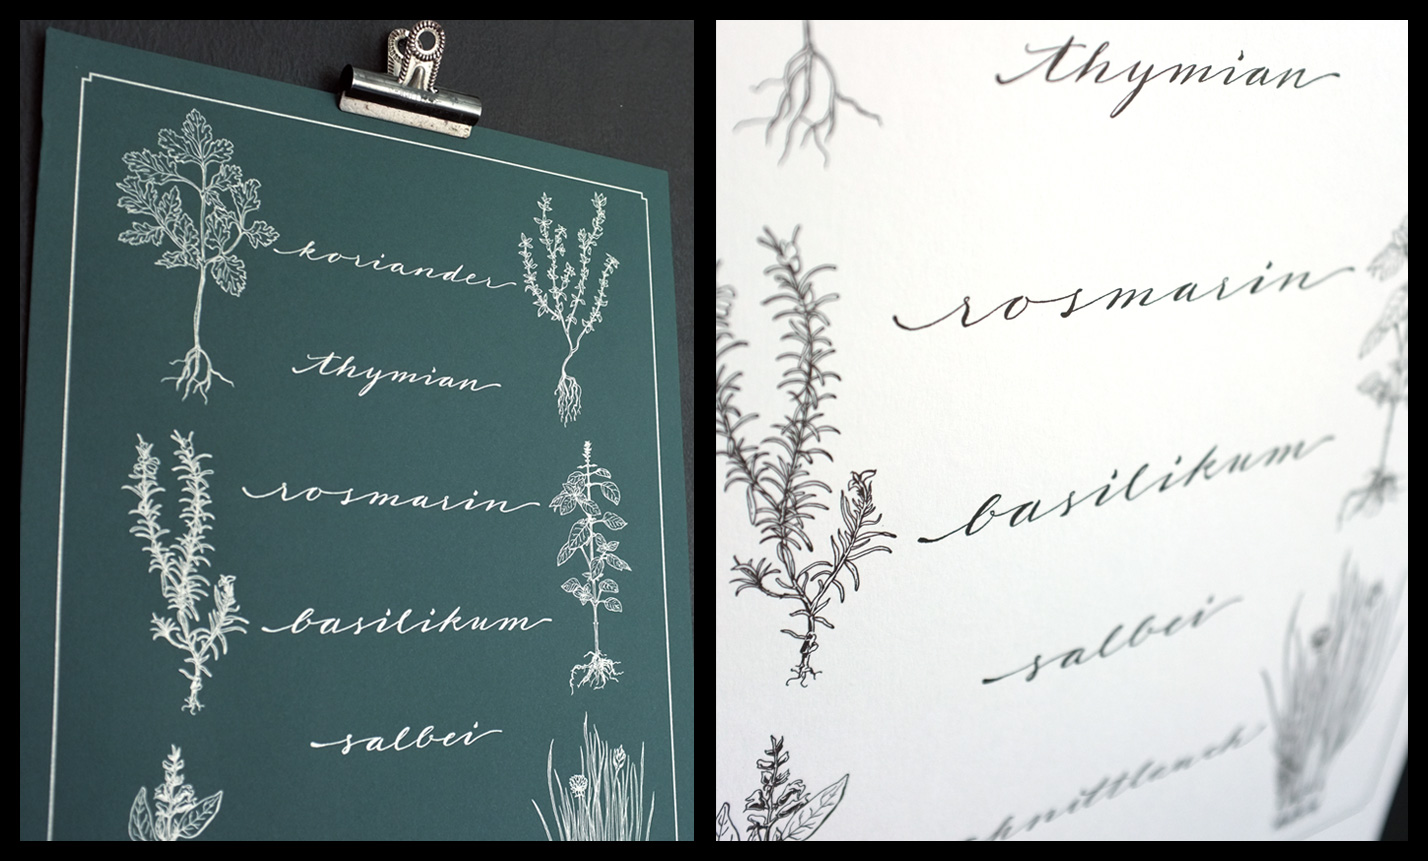 koriander
thymian
rosmarin
basilikum
salbei
thymian
rosmarin
basilikum
salbei